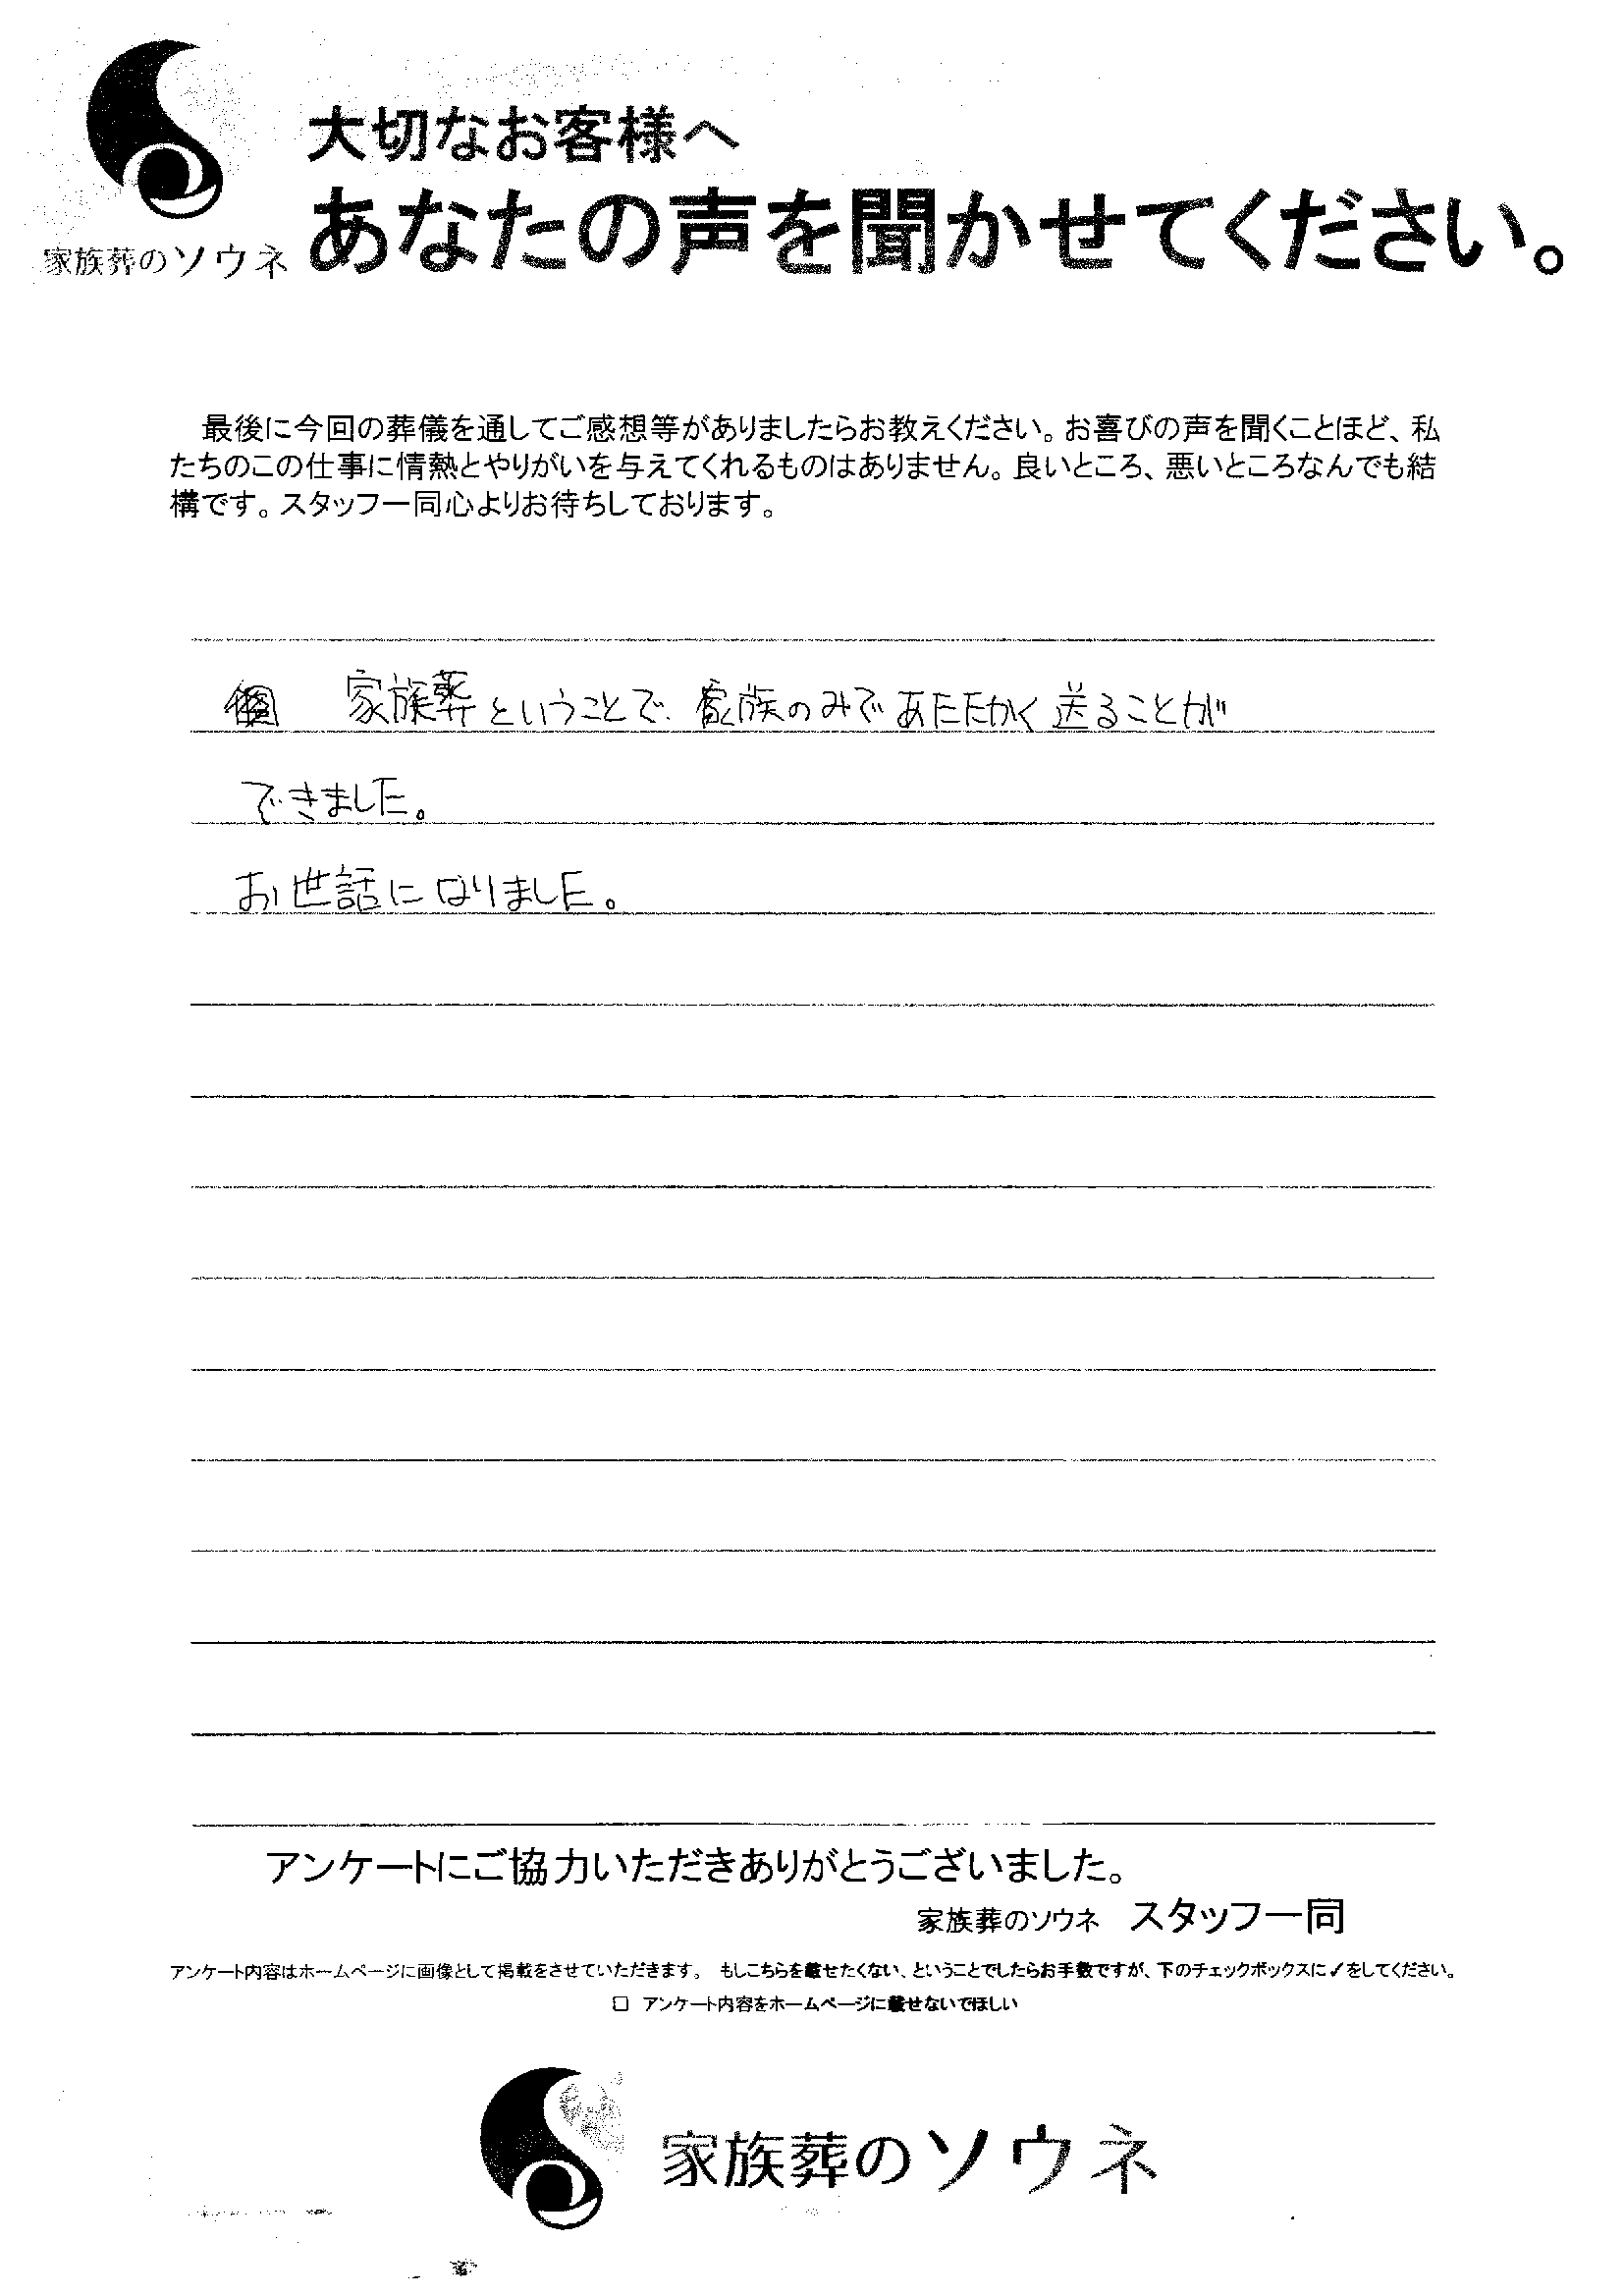 大切なお客様へ
家族葬のソウネ
あなたの声を聞かせてください。
最後に今回の葬儀を通してご感想等がありましたらお教えください。お喜びの声を聞くことほど、私
たちのこの仕事に情熱とやりがいを与えてくれるものはありません。良いところ、悪いところなんでも結
構です。スタッフ一同心よりお待ちしております。
家族葬ということで、家族のみであたたかく送ることが
できました。
お世話になりました。
アンケートにご協力いただきありがとうございました。
家族葬のソウネ スタッフ一同
アンケート内容はホームページに画像として掲載をさせていただきます。 もしこちらを載せたくない、ということでしたらお手数ですが、下のチェックボックスに✓をしてください。
□ アンケート内容をホームページに載せないでほしい
家族葬のソウネ